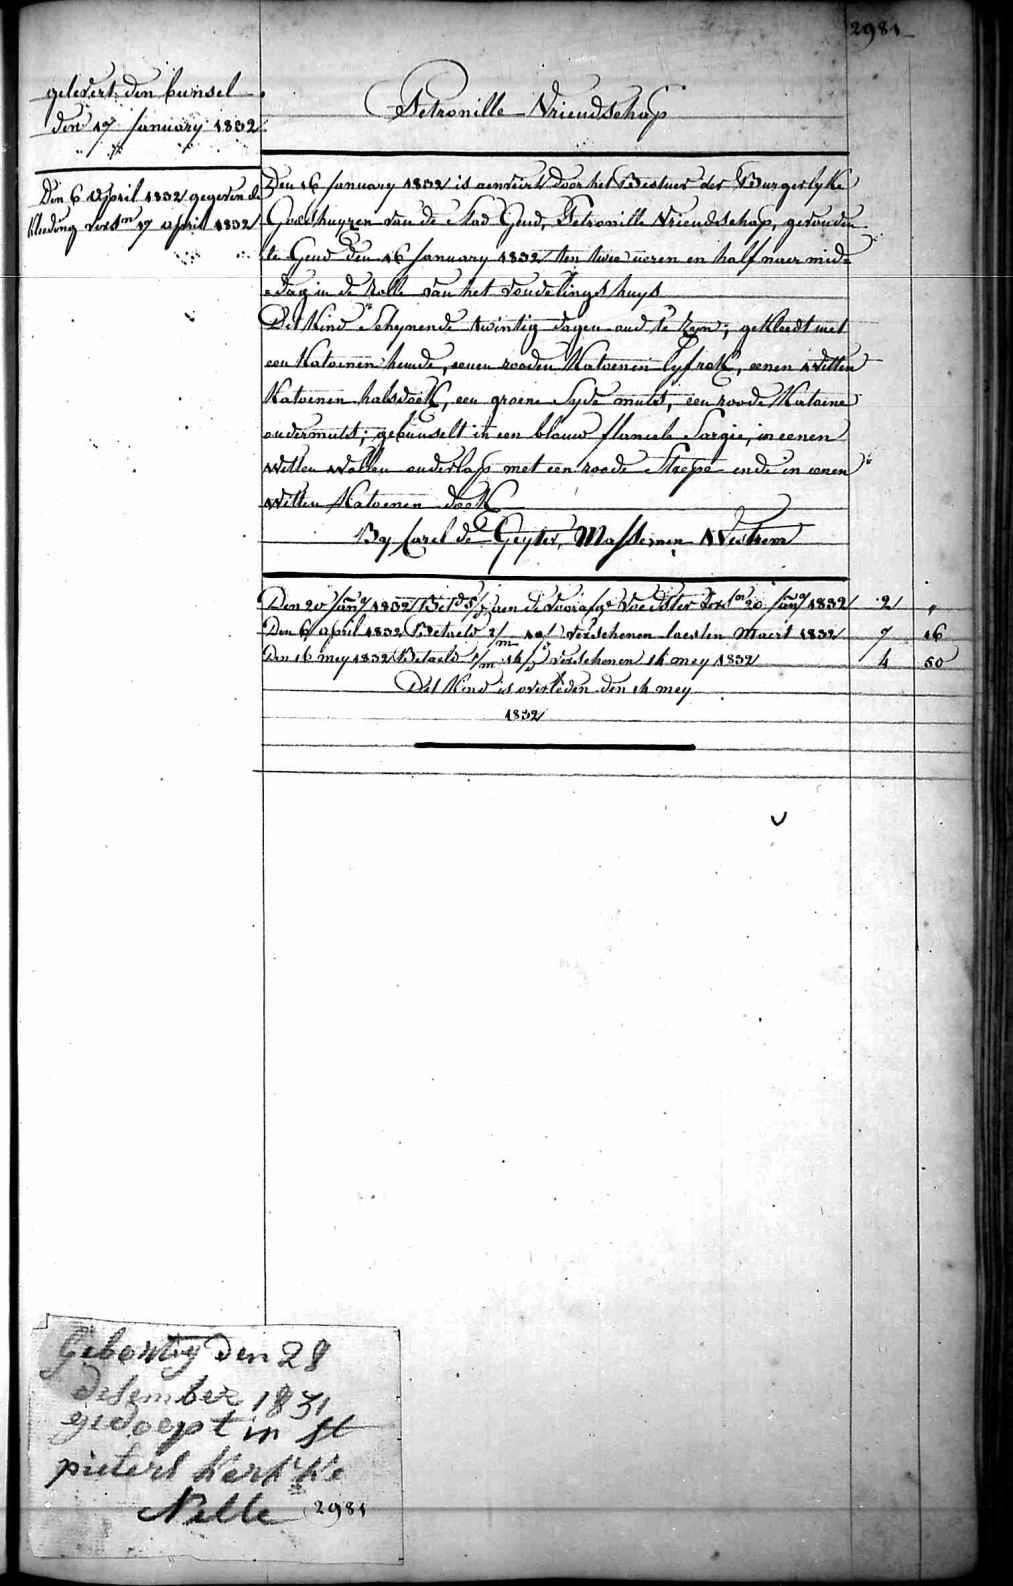 2981
gelevert den bunsel
den 17 January 1832
Petronille Vriendschap
Den 6 april 1832 gegeven de
kleeding vers.n 17 april 1832
Den 16 January 1832 is aenveirt door het Bestuer der Burgerlyke
Godshuyzen van de Stad Gend, Petronille Vriendschap, gevonden
te Gend den 16 January 1832 ten twee ueren en half naer mid=
=dag in de Rolle van het vondelings huys
Dit Kind Schynende twintig dagen oud te zyn; gekleedt met
een Katoenen hemde, eenen rooden Katoenen lyfrok, eenen witten
Katoenen halsdoek, een groene Syde muts, een roode Katoene
ondermuts; gebunselt in een blauw flanele Sargie, in eenen
witten wollen onderlap met een roode Strepe ende in eenen
witten Katoenen doek
By Carel de Geyter, Massemen Westrem
Den 20 Jan.y 1832 Bet.d aen de voedster vers.n 20 Jan.y 1832 2 "
Den 6 april 1832 Betaeld 2/m 10/ verschenen laesten Maert 1832 7 16
Den 16 mey 1832 Betaeld 1/m 14/ verschenen 14 mey 1832 4 50
Dit Kind is overleden den 14 mey
1832
Geborttig den 28
desember 1831
gedoept in st
pieters kerkke
Nelle 2981